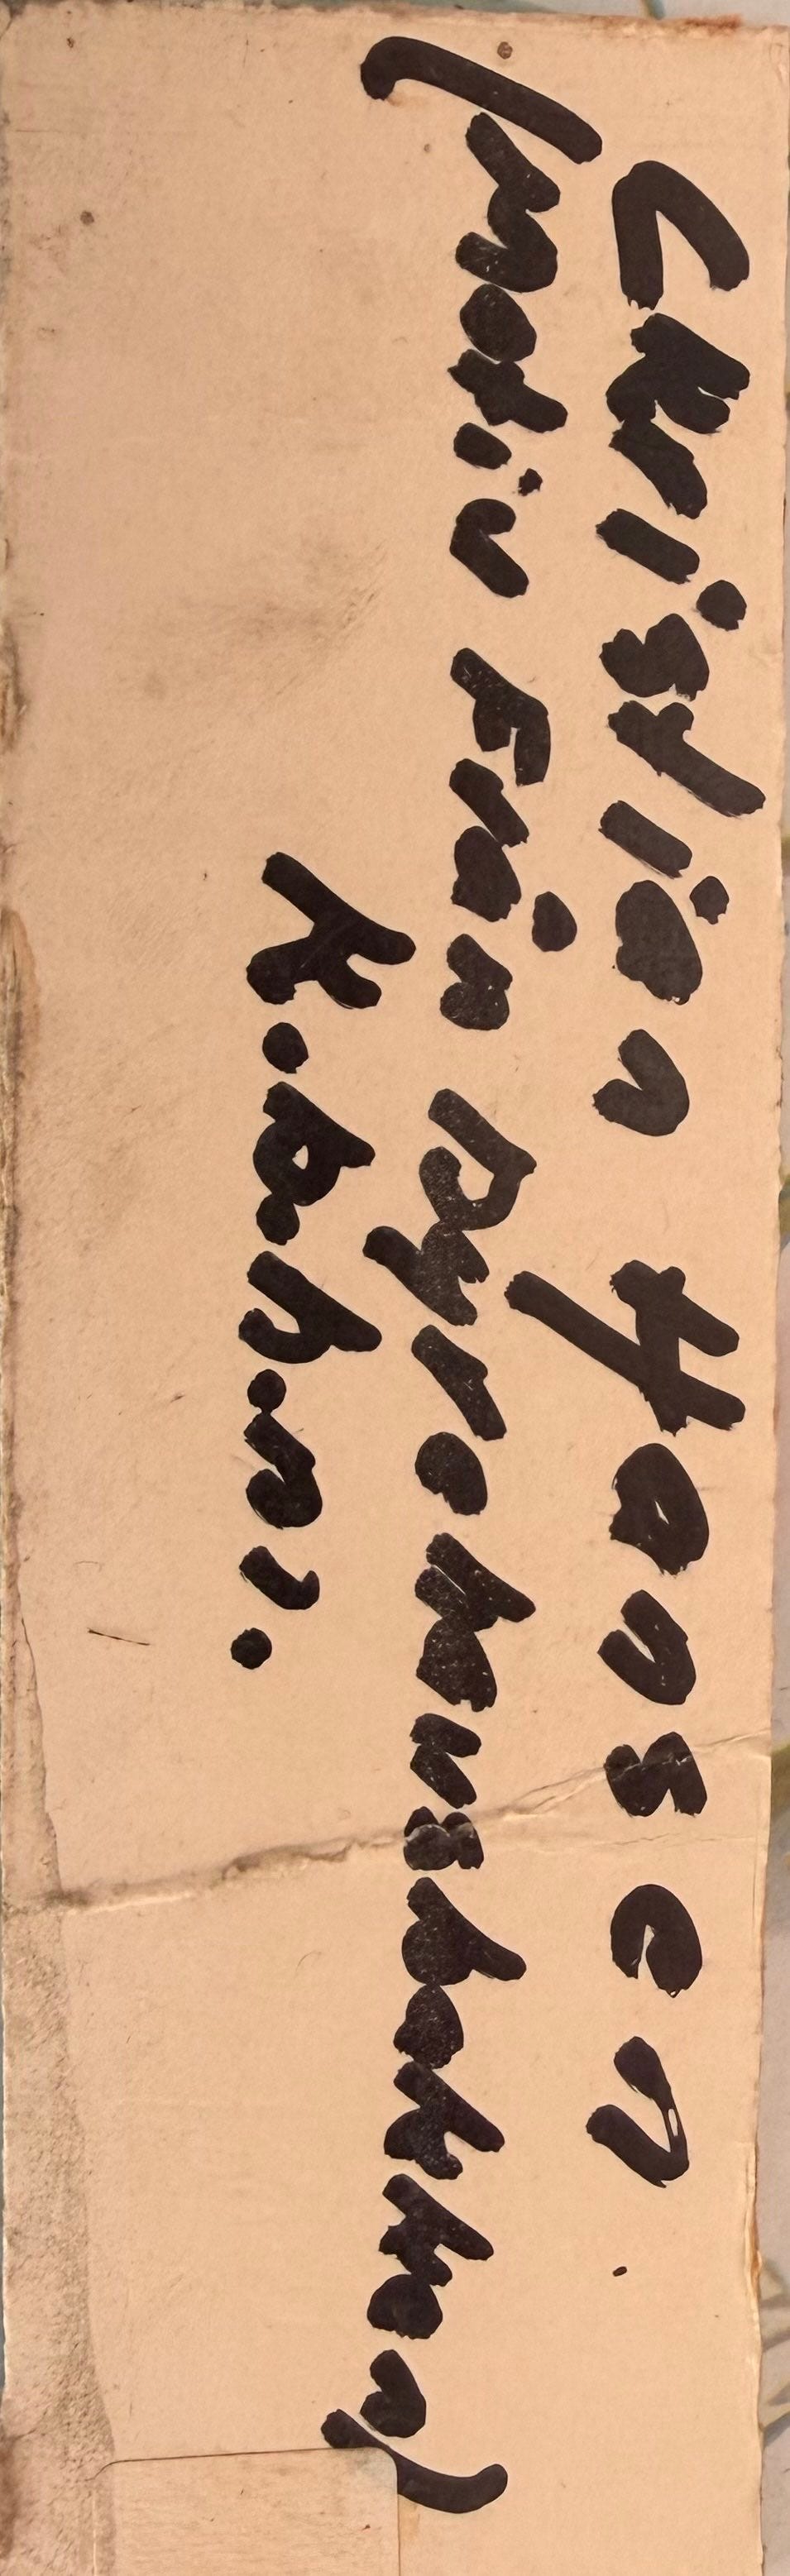 Christian Hansen
(motiv Från Dyrehavsbakken)